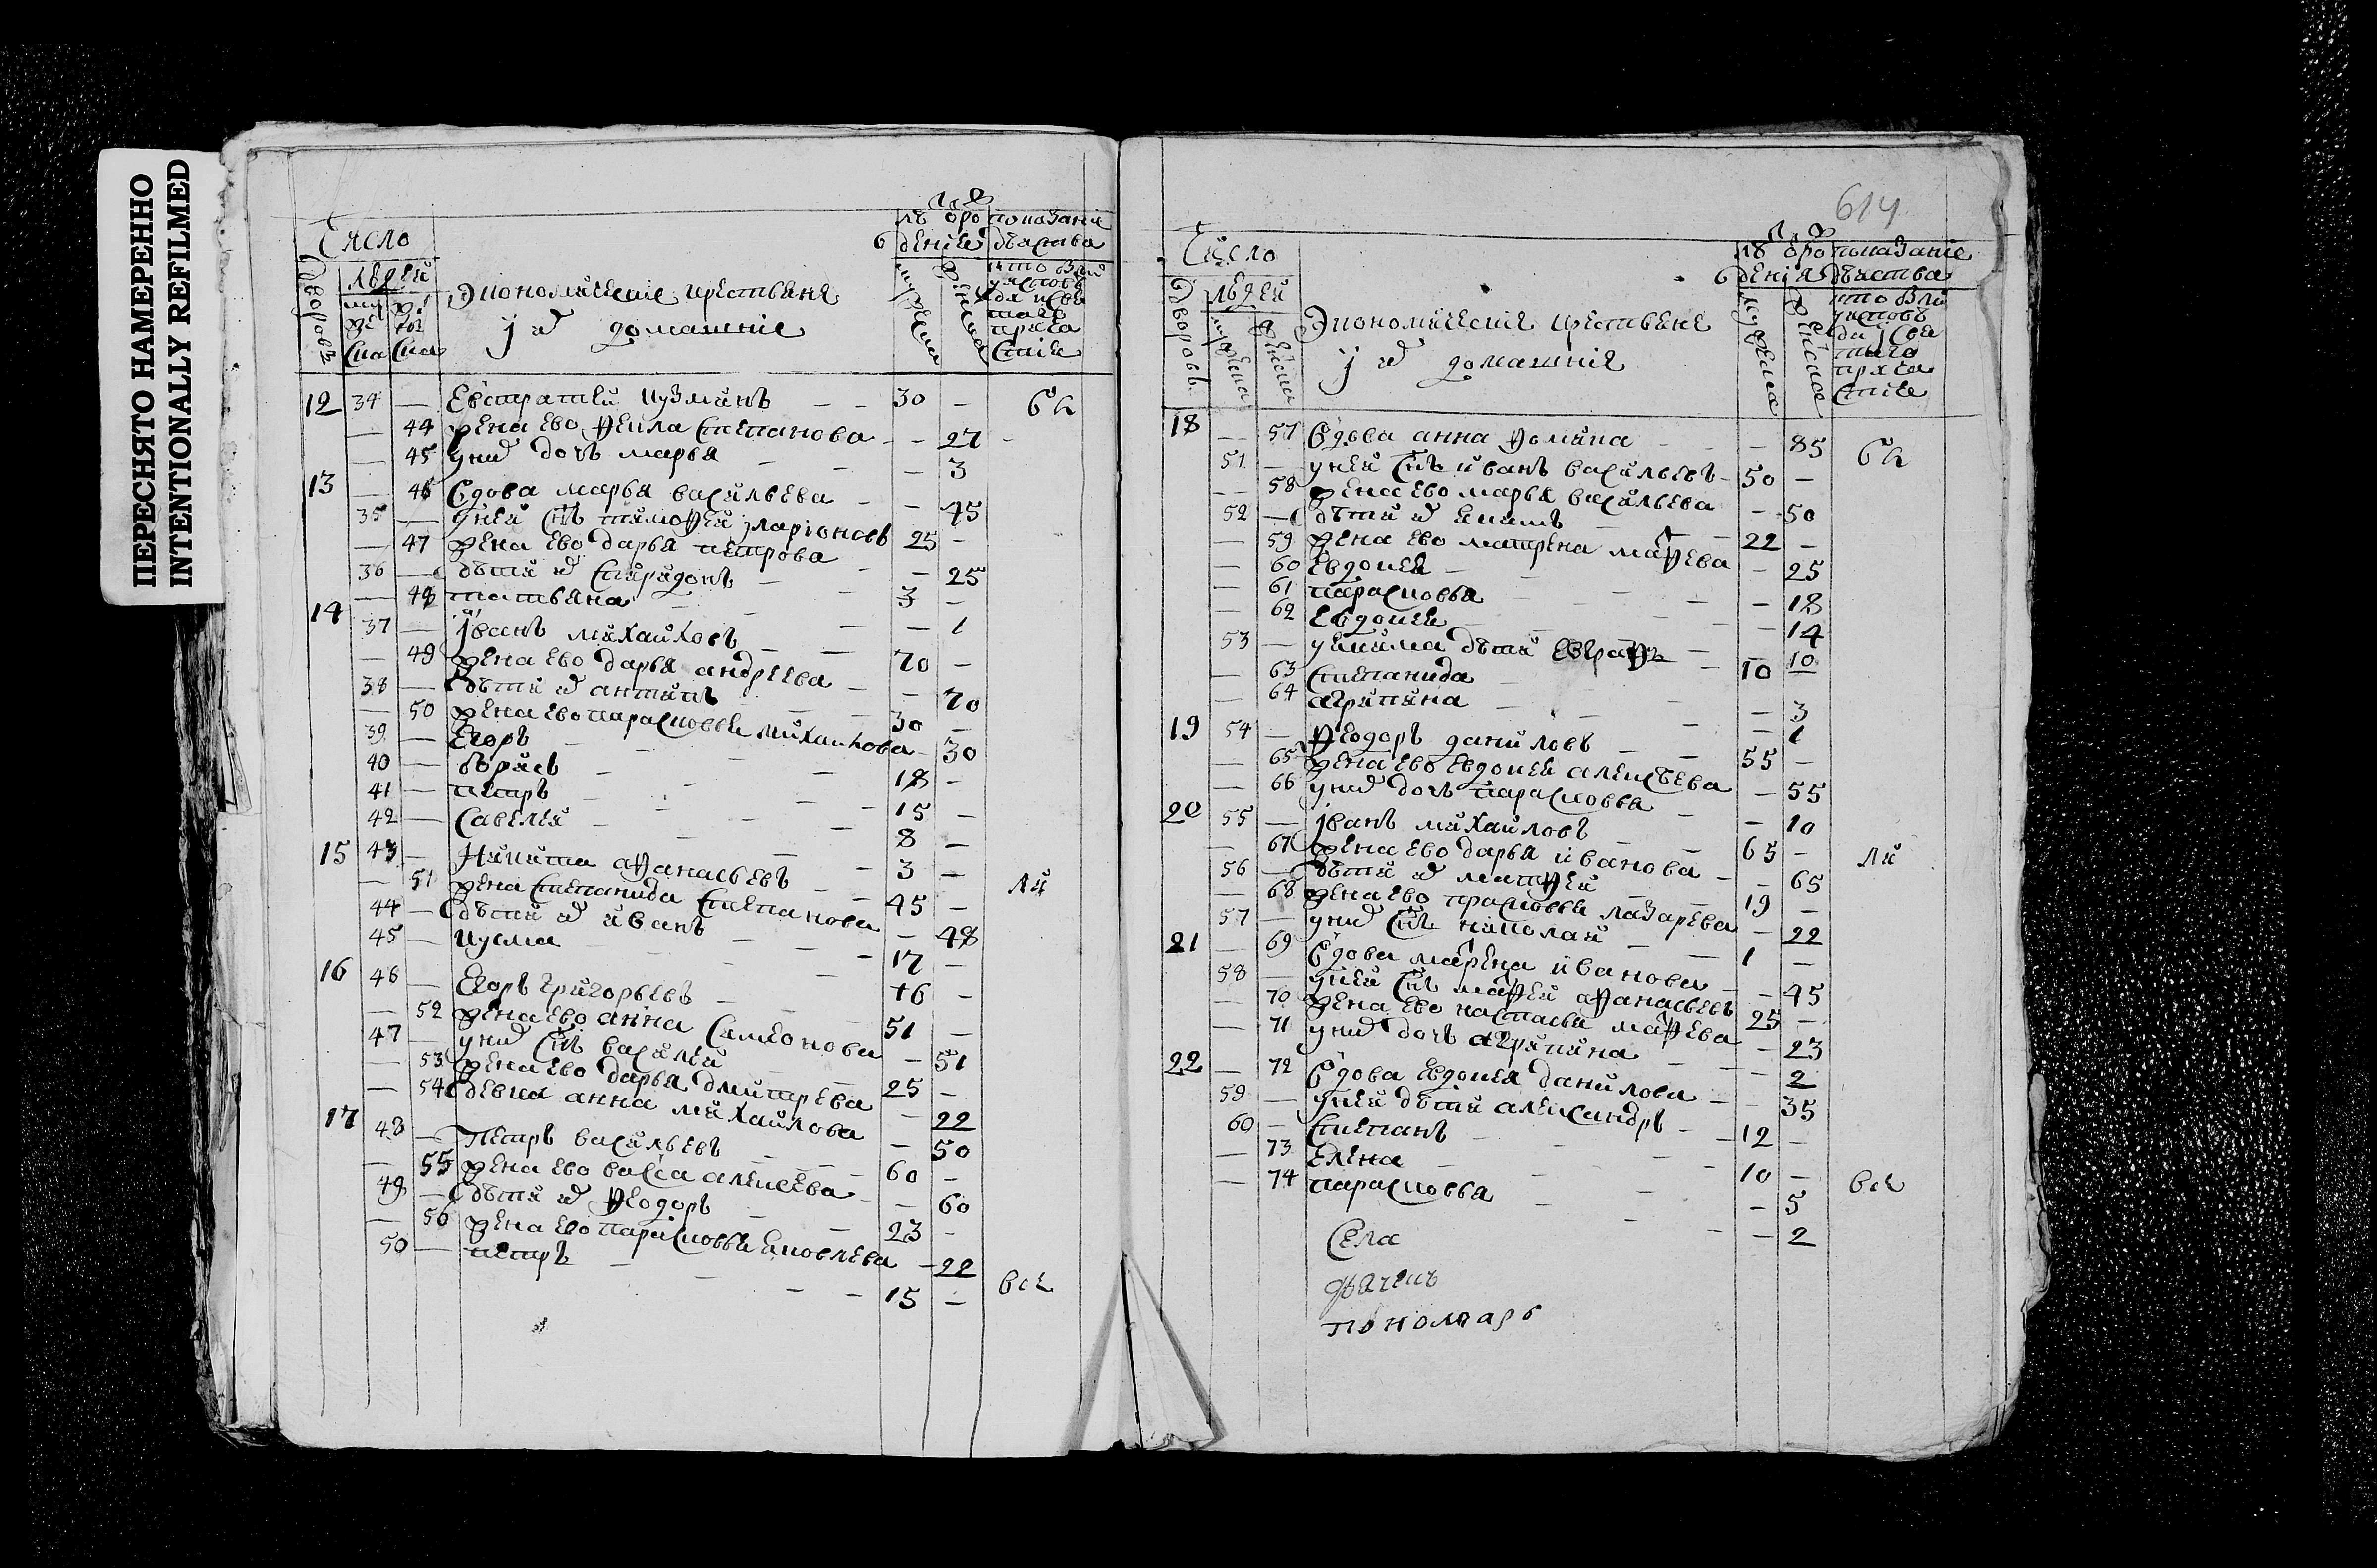 ПЕРЕСНЯТО НАМЕРЕННО
INTENTIONALLY REFILMED
Число
людей
дворовъ
экономические крестьяне
и их домашние
12 34 — Евстратей кузминъ — — 30 —
— 44 жена ево фекла степанова — — 27 —
— 45 у них дочь марья — — — 3
13 — 46 вдова марья васильева — — 45
35 — у неи снъ тимофеи иларионовъ 25 —
— 47 жена ево дарья петрова — — 25
36 — дѣти их спиридонъ — — 3 —
— 48 татьяна — — — 1
14 37 — иванъ михаиловъ — — 70 —
— 49 жена ево дарья андреева — — 70
38 — дѣти их антипъ — — 30 —
— 50 жена ево парасковья михаилова — 30
39 — егоръ — — — 18 —
40 — борисъ — — — 15 —
41 — петръ — — — 8 —
42 — савелеи — — — 3 —
15 43 — никита афанасьевъ — — 45 —
— 51 жена степанида степанова — 48
44 — дѣти их иванъ — — 17 —
45 — кусма — — — 16 —
16 46 — егоръ григорьевъ — 51 —
— 52 жена ево анна семионова — 51
47 — у них снъ василеи — — 25 —
— 53 жена ево дарья дмитрева — 22
— 54 девка анна михаилова — 50
17 48 — петръ васильевъ — — 60 —
— 55 жена ево васса алексеева — — 60
49 — дѣти их феодоръ — — 23 —
— 56 жена ево парасковья яковлева — 22
50 — петръ — — — 15 —
614
Число
людей
дворовъ
экономические крестьяне
и их домашние
18 — 57 вдова анна фомина — — 85
51 — у неи снъ иванъ васильевъ — 50 —
— 58 жена ево марья васильева — 50
52 — дѣти их екимъ — — 22 —
— 59 жена ево матрена матфева — 25
— 60 евдокея — — — 18
— 61 парасковья — — — 14
— 62 евдокея — — — 10
53 — у екима дѣти евграфъ — 10 —
— 63 степанида — — — 3
— 64 агрипина — — — 1
19 54 — феодоръ даниловъ — — 55 —
— 65 жена ево евдокея алексѣева — 55
— 66 у них дочь парасковья — — 10
20 55 — иванъ михаиловъ — — 65 —
— 67 жена ево дарья иванова — — 65
56 — дѣти их матфеи — — 19 —
— 68 жена ево прасковья лазарева — 22
57 — у них снъ николаи — — 1 —
21 — 69 вдова матрена иванова — — 45
58 — у неи снъ матфеи афанасьевъ 25 —
— 70 жена ево настасья матфева — 23
— 71 у них дочь агрипина — — 2
22 — 72 вдова евдокея данилова — — 35
59 — у неи дѣти александръ — 12 —
60 — степанъ — — — 10 —
— 73 елена — — — 5
— 74 парасковья — — — 2
села
дьячекъ
пономарь